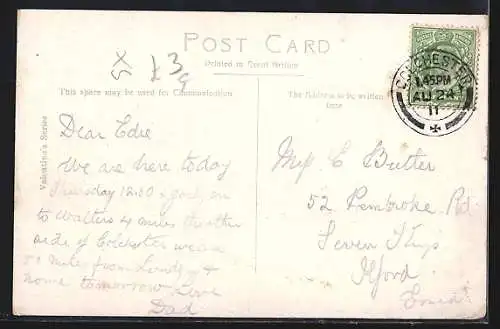 POST CARD
Printed in Great Britain
This space may be used for Communication
The Address to be written
here
Valentine's Series
COLCHESTER
1.45PM
AU 24
11
5X
£3
Dear Edie
We are here today
Thursday 12.30 & going on
to Walters 4 miles the other
side of Colchester we are
50 miles from London &
home tomorrow love
Dad
Miss E Butler
52 Pembroke Rd
Seven Kings
Ilford
Essex